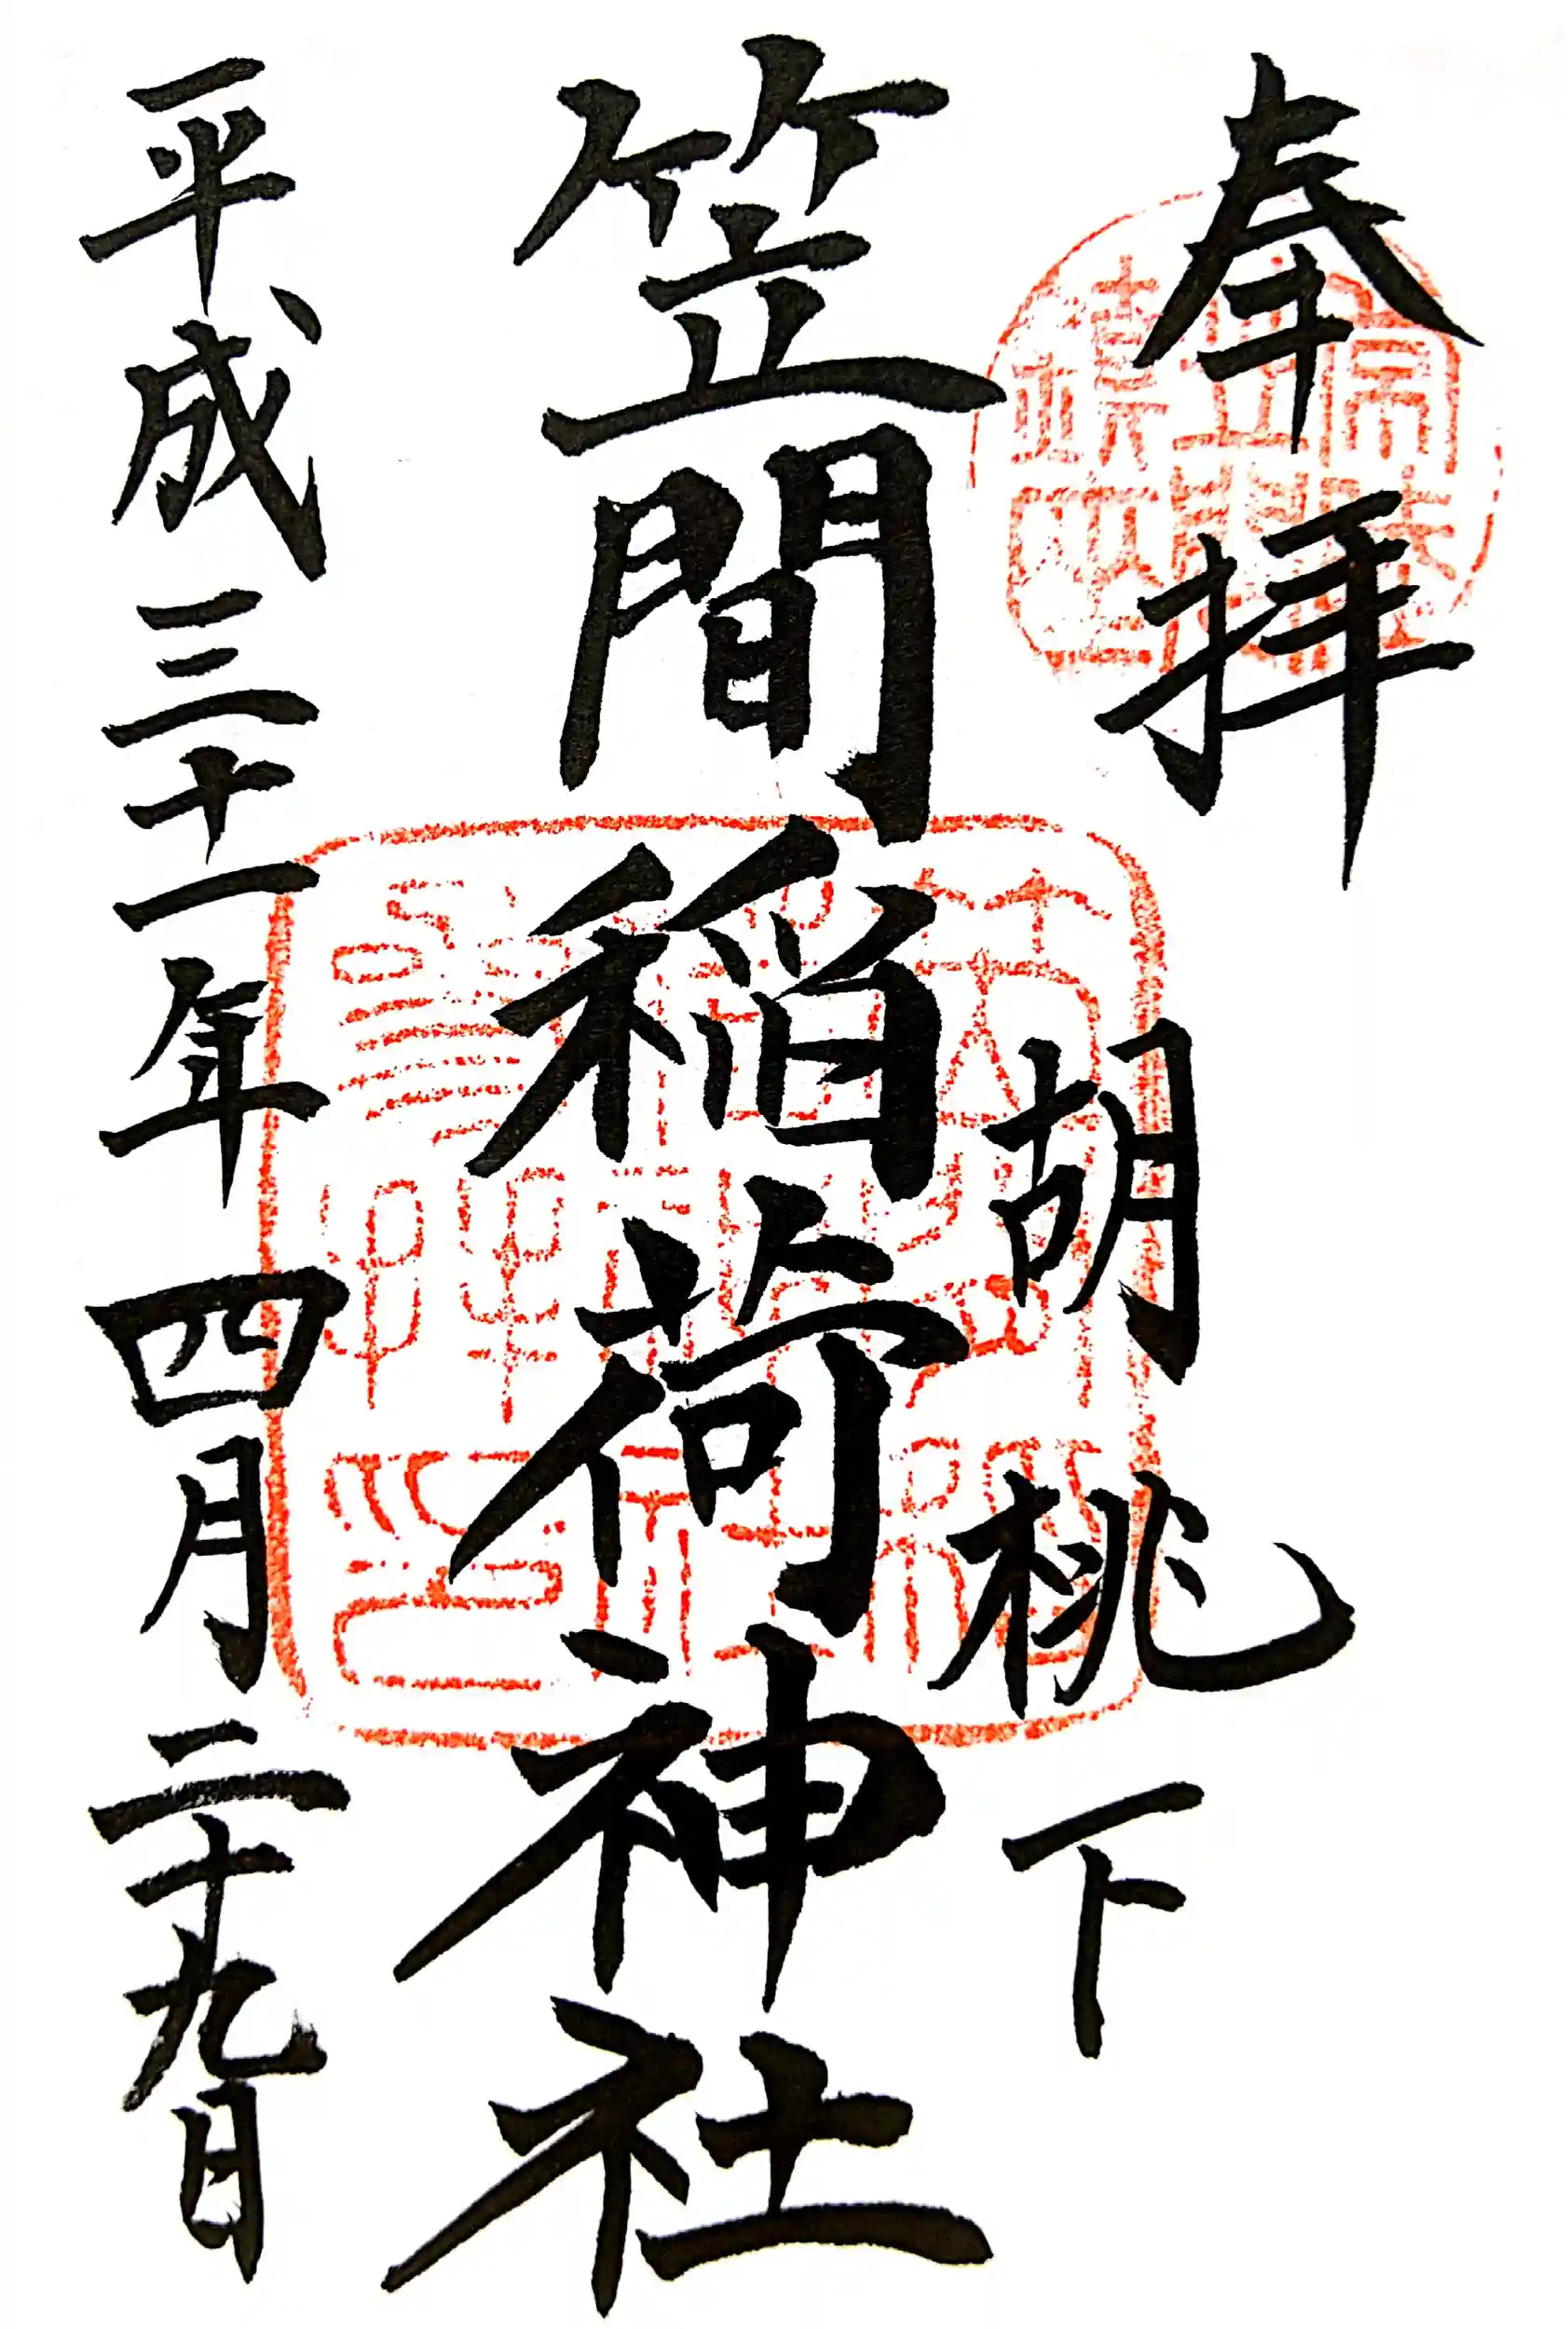 奉拝
胡桃下
笠間稲荷神社
平成三十一年四月二十九日